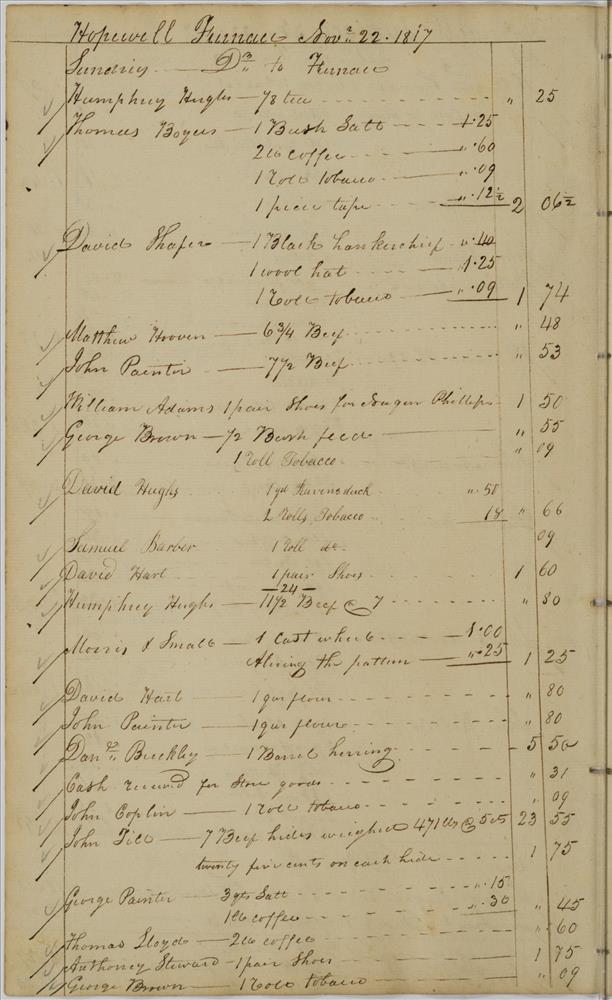 Hopewell Furnace Novr 22. 1817
Sundries — Drs to Furnace
Humphrey Hughs — 1/8 tea " 25
Thomas Boyers — 1 Bush Salt 1.25
2 lb coffee ".60
1 Roll tobacco ".09
1 piece tape ".12½ 2 06½
David Shafer — 1 Black hankerchief ".40
1 wool hat 1.25
1 Roll tobacco ".09 1 74
Matthew Hoover — 6 3/4 Beef " 48
John Painter — 7 1/2 Beef " 53
William Adams 1 pair Shoes for Phillips 1 50
George Brown — 1/2 Bush feed " 55
1 Roll Tobacco " 09
David Hughs 1 yd Ravensduck ".50
2 Rolls Tobacco 18 " 66
Samuel Barber 1 Roll do 09
David Hart 1 pair Shoes 1 60
— 24 —
Humphrey Hughs — 11 1/2 Beef @ 7 " 80
Morris & Small — 1 Cast wheel 1.00
the pattern ".25 1 25
David Hart — 1 qur flour " 80
John Painter — 1 qur flour " 80
Danl Buckley — 1 Barrel herring 5 50
Cash received for Store goods " 31
John Coplin — 1 Roll tobacco " 09
John Till — 7 Beef hides weighed 471 lbs @ 5 cts 23 55
twenty five cents on each hide 1 75
George Painter — 3 qts Salt ".15
1 lb coffee ".30 " 45
Thomas Lloyd — 2 lb coffee ".60
Anthoney Steward — 1 pair Shoes 1 75
George Brown — 1 Roll tobacco " 09